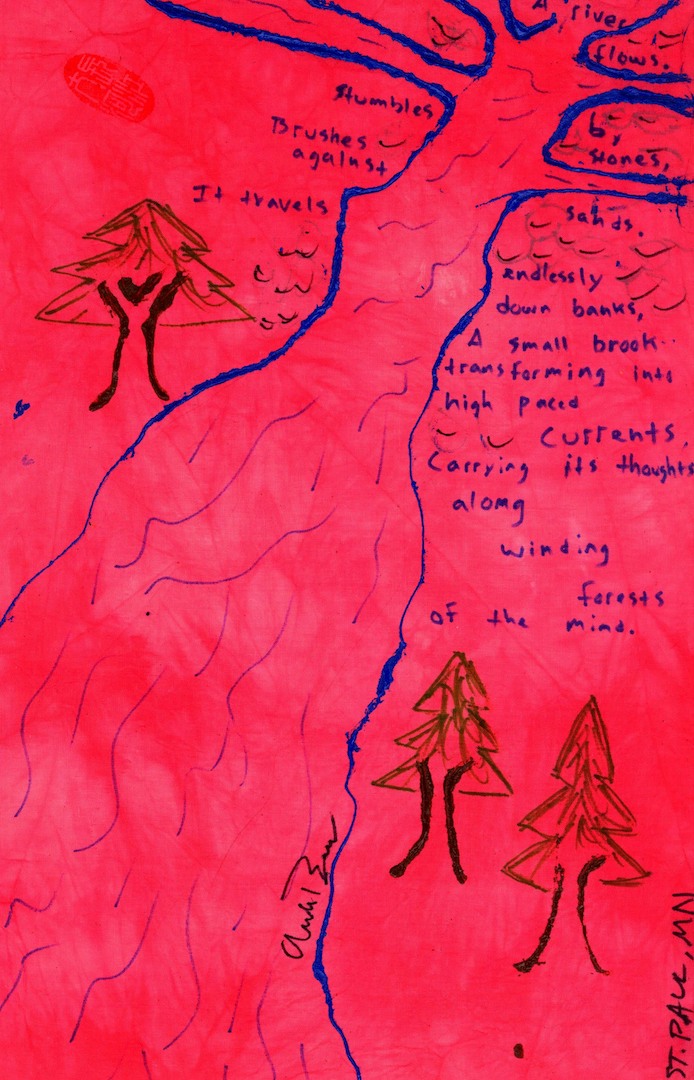 A river
flows.
Stumbles
by
stones,
Brushes
against
sands.
It travels
endlessly
down banks,
A small brook
transforming into
high paced
currents,
Carrying its thoughts
alomg
winding
forests
of the mind.
ST. PAUL, MN